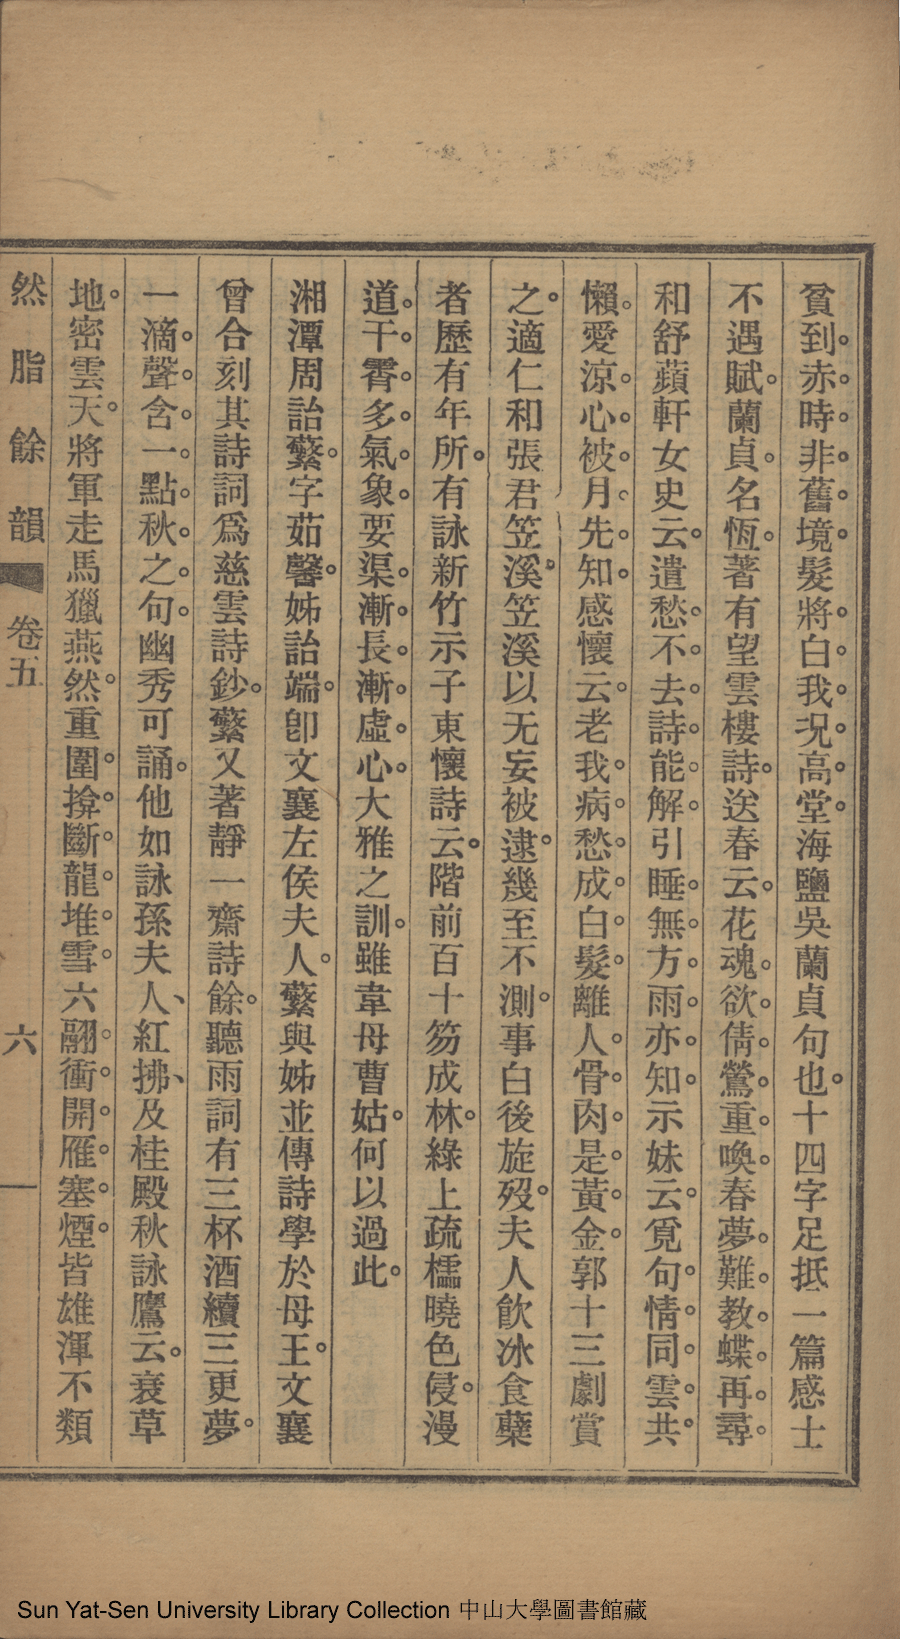 貧到赤時非舊境髮將白我况高堂海鹽吳蘭貞句也十四字足抵一篇感士
不遇賦蘭貞名恆著有望雲樓詩送春云花魂欲倩鶯重喚春夢難教蝶再尋
和舒蘋軒女史云遣愁不去詩能解引睡無方雨亦知示妹云覓句情同雲共
懶愛涼心被月先知感懷云老我病愁成白髮離人骨肉是黃金郭十三劇賞
之適仁和張君笠溪笠溪以无妄被逮幾至不測事白後旋歿夫人飲冰食蘗
者歷有年所有詠新竹示子東懷詩云階前百十笏成林綠上疏櫺曉色侵漫
道干霄多氣象要渠漸長漸虛心大雅之訓雖韋母曹姑何以過此
湘潭周詒蘩字茹馨姊詒端卽文襄左侯夫人蘩與姊並傳詩學於母王文襄
曾合刻其詩詞爲慈雲詩鈔蘩又著靜一齋詩餘聽雨詞有三杯酒續三更夢
一滴聲含一點秋之句幽秀可誦他如詠孫夫人紅拂及桂殿秋詠鷹云衰草
地密雲天將軍走馬獵燕然重圍揜斷龍堆雪六翮衝開雁塞煙皆雄渾不類
然脂餘韻 卷五 六
Sun Yat-Sen University Library Collection 中山大學圖書館藏